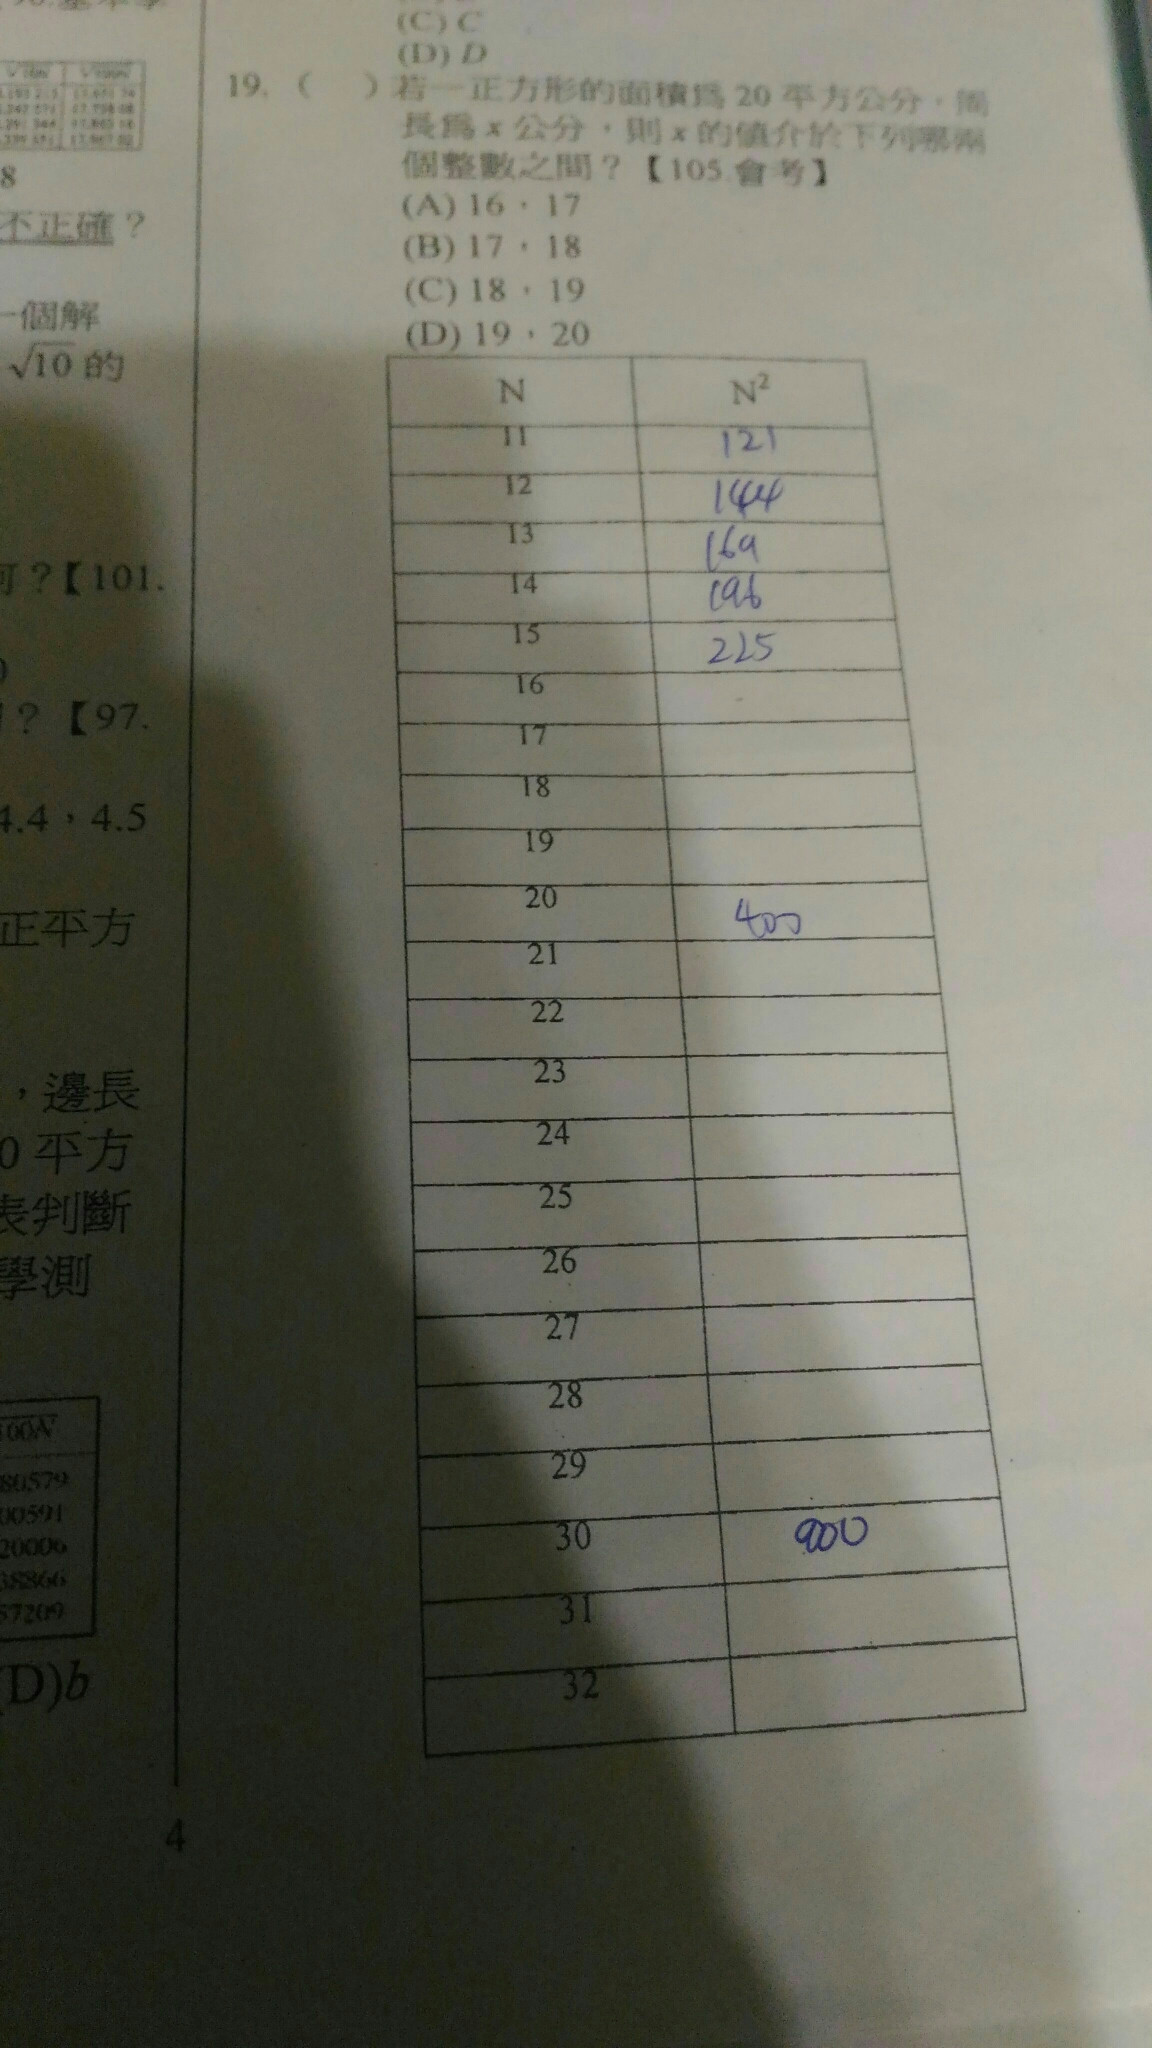 8
不正確？
一個解
√10 的
何？【101.
？【97.
4.4，4.5
正平方
，邊長
0 平方
表判斷
學測
100N
80579
00591
20006
38866
57209
(D)b
(C) C
(D) D
19. (　) 若一正方形的面積為 20 平方公分，周
長為 x 公分，則 x 的值介於下列哪兩
個整數之間？【105.會考】
(A) 16，17
(B) 17，18
(C) 18，19
(D) 19，20
N N²
11 121
12 144
13 169
14 196
15 225
16
17
18
19
20 400
21
22
23
24
25
26
27
28
29
30 900
31
32
4